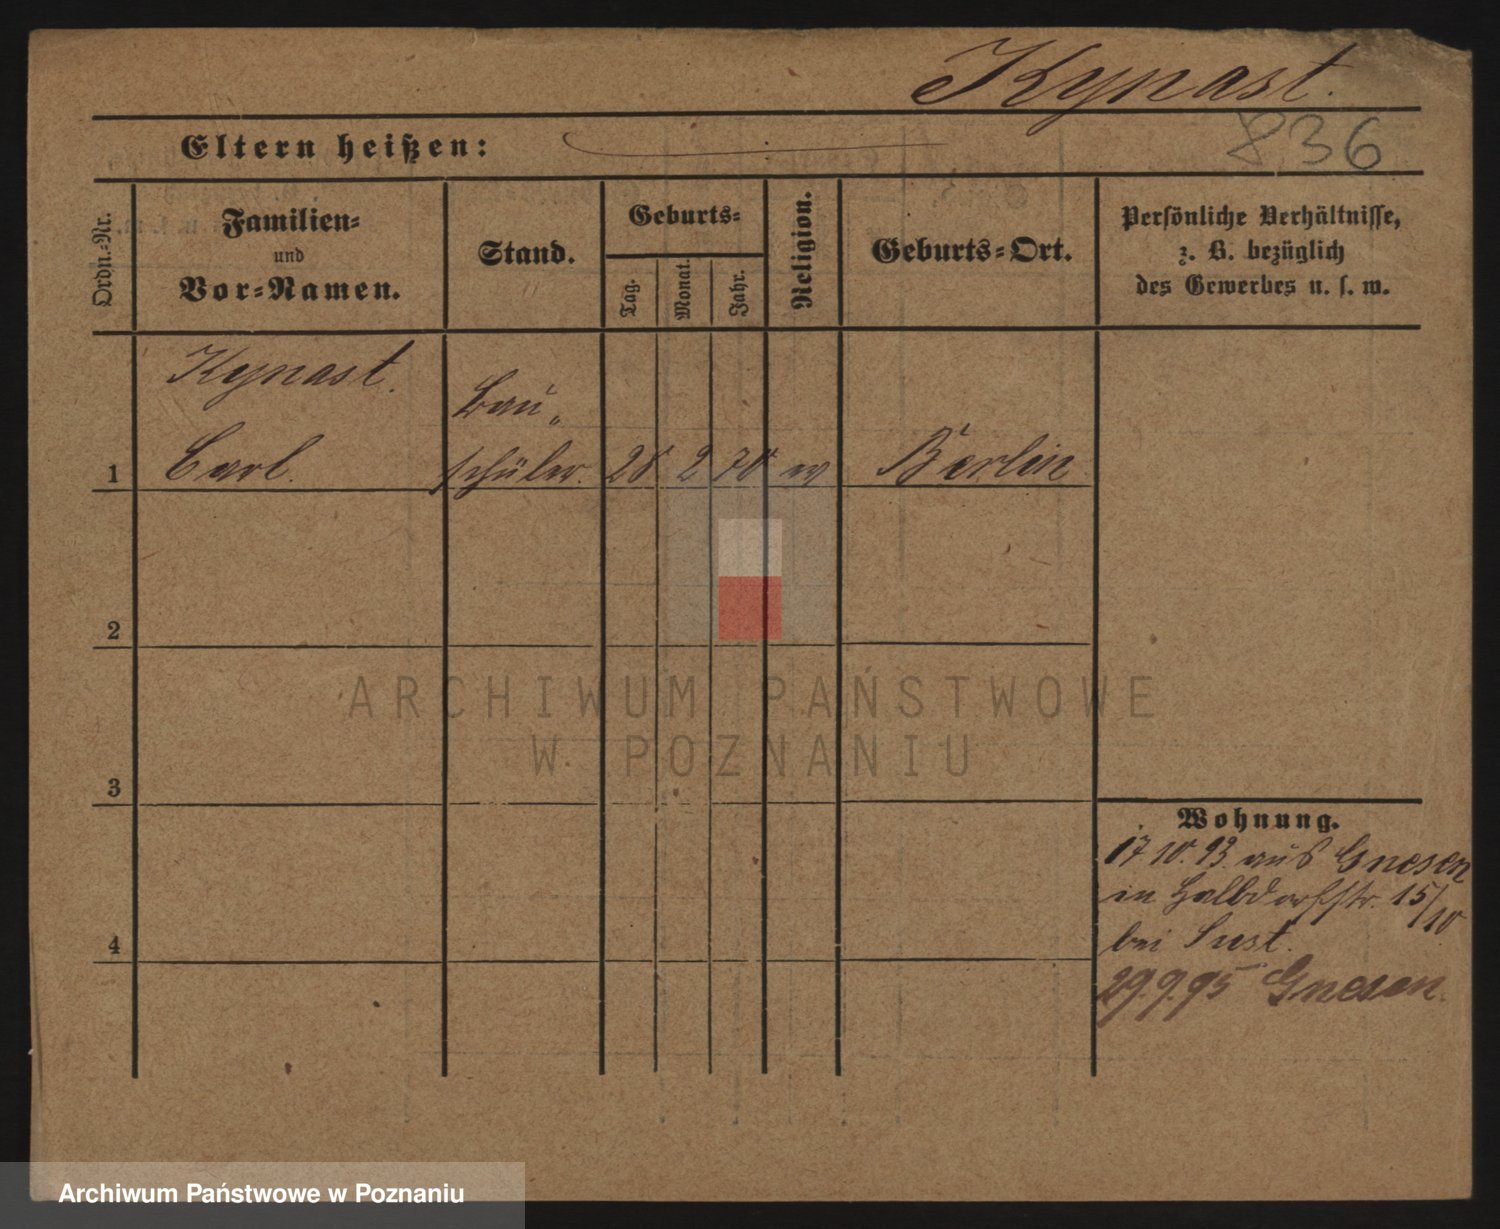 Kynast.
836
Eltern heißen:
Ordn.-Nr.
Familien-
und
Vor-Namen.
Stand.
Geburts-
Tag.
Monat.
Jahr.
Religion.
Geburts-Ort.
Persönliche Verhältnisse,
z. B. bezüglich
des Gewerbes u. s. w.
Kynast.
Bau-
1 Carl. schüler. 28 2 70 ev Berlin
2
3
4
Wohnung.
17 10. 93. aus Gnesen
in Halbdorfstr. 15/10
bei Sust.
29.9.95 Gnesen.
ARCHIWUM PAŃSTWOWE
W POZNANIU
Archiwum Państwowe w Poznaniu